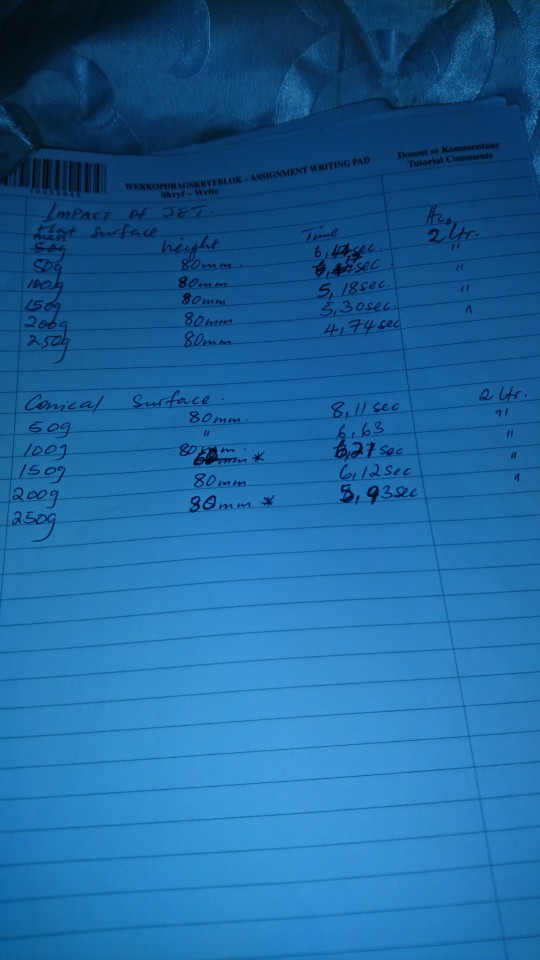 WERKOPDRAGSKRYFBLOK – ASSIGNMENT WRITING PAD
Skryf – Write
Dosent se Kommentaar
Tutorial Comments
IMPACT OF JET.
Flat Surface
height Time H20
50g 80mm. 6, sec. 2 ltr.
100g 80mm sec "
150g 80mm 5,18sec. "
200g 80mm 5,30sec. "
250g 80mm 4,74sec "
Conical Surface.
50g 80mm. 8,11 sec 2 ltr.
100g " 6,63 "
150g 80mm * 6,27sec "
200g 80mm 6,12sec "
250g 80mm * 5,93sec "